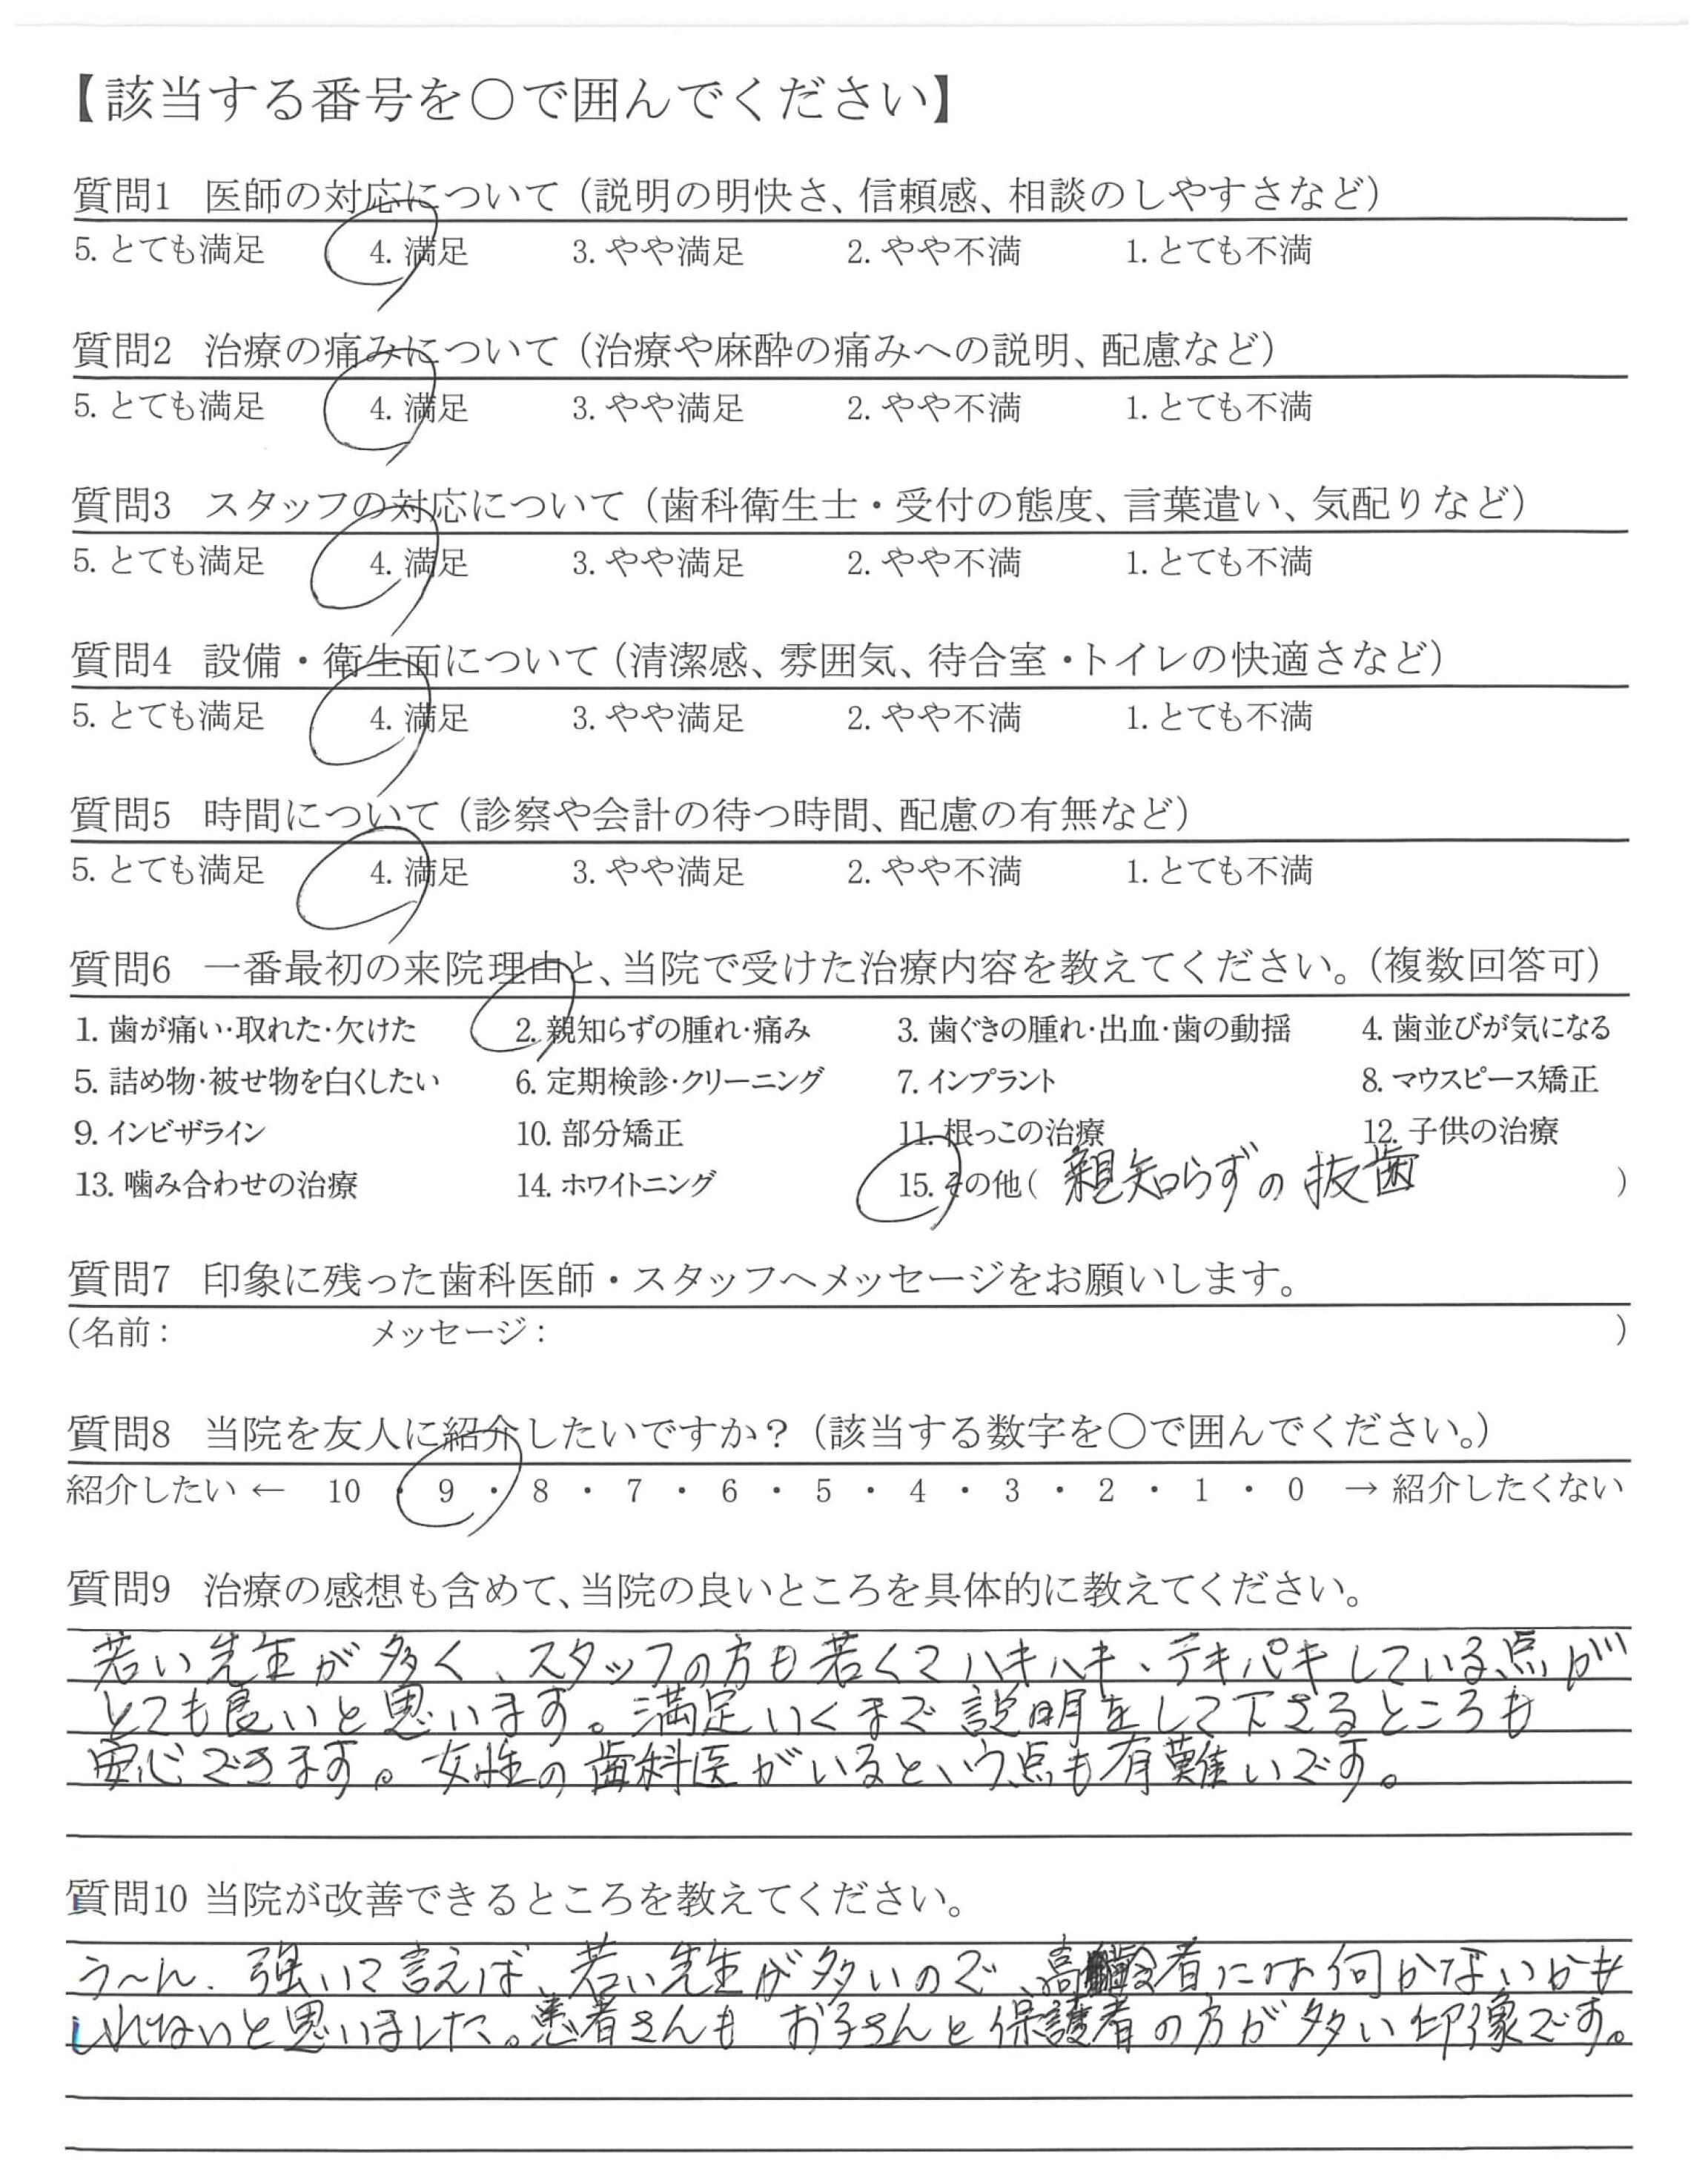 【該当する番号を〇で囲んでください】
質問1 医師の対応について（説明の明快さ、信頼感、相談のしやすさなど）
5. とても満足 4. 満足 3. やや満足 2. やや不満 1. とても不満
質問2 治療の痛みについて（治療や麻酔の痛みへの説明、配慮など）
5. とても満足 4. 満足 3. やや満足 2. やや不満 1. とても不満
質問3 スタッフの対応について（歯科衛生士・受付の態度、言葉遣い、気配りなど）
5. とても満足 4. 満足 3. やや満足 2. やや不満 1. とても不満
質問4 設備・衛生面について（清潔感、雰囲気、待合室・トイレの快適さなど）
5. とても満足 4. 満足 3. やや満足 2. やや不満 1. とても不満
質問5 時間について（診察や会計の待つ時間、配慮の有無など）
5. とても満足 4. 満足 3. やや満足 2. やや不満 1. とても不満
質問6 一番最初の来院理由と、当院で受けた治療内容を教えてください。（複数回答可）
1. 歯が痛い・取れた・欠けた 2. 親知らずの腫れ・痛み 3. 歯ぐきの腫れ・出血・歯の動揺 4. 歯並びが気になる
5. 詰め物・被せ物を白くしたい 6. 定期検診・クリーニング 7. インプラント 8. マウスピース矯正
9. インビザライン 10. 部分矯正 11. 根っこの治療 12. 子供の治療
13. 噛み合わせの治療 14. ホワイトニング 15. その他（ 親知らずの抜歯 ）
質問7 印象に残った歯科医師・スタッフへメッセージをお願いします。
（名前： メッセージ： ）
質問8 当院を友人に紹介したいですか？（該当する数字を〇で囲んでください。）
紹介したい ← 10 ・ 9 ・ 8 ・ 7 ・ 6 ・ 5 ・ 4 ・ 3 ・ 2 ・ 1 ・ 0 → 紹介したくない
質問9 治療の感想も含めて、当院の良いところを具体的に教えてください。
若い先生が多く、スタッフの方も若くてハキハキ、テキパキしている点が
とても良いと思います。満足いくまで説明をして下さるところも
安心できます。女性の歯科医がいるという点も有難いです。
質問10 当院が改善できるところを教えてください。
う〜ん、強いて言えば、若い先生が多いので、高齢者には何かないかも
しれないと思いました。患者さんも お子さんと保護者の方が多い印象です。